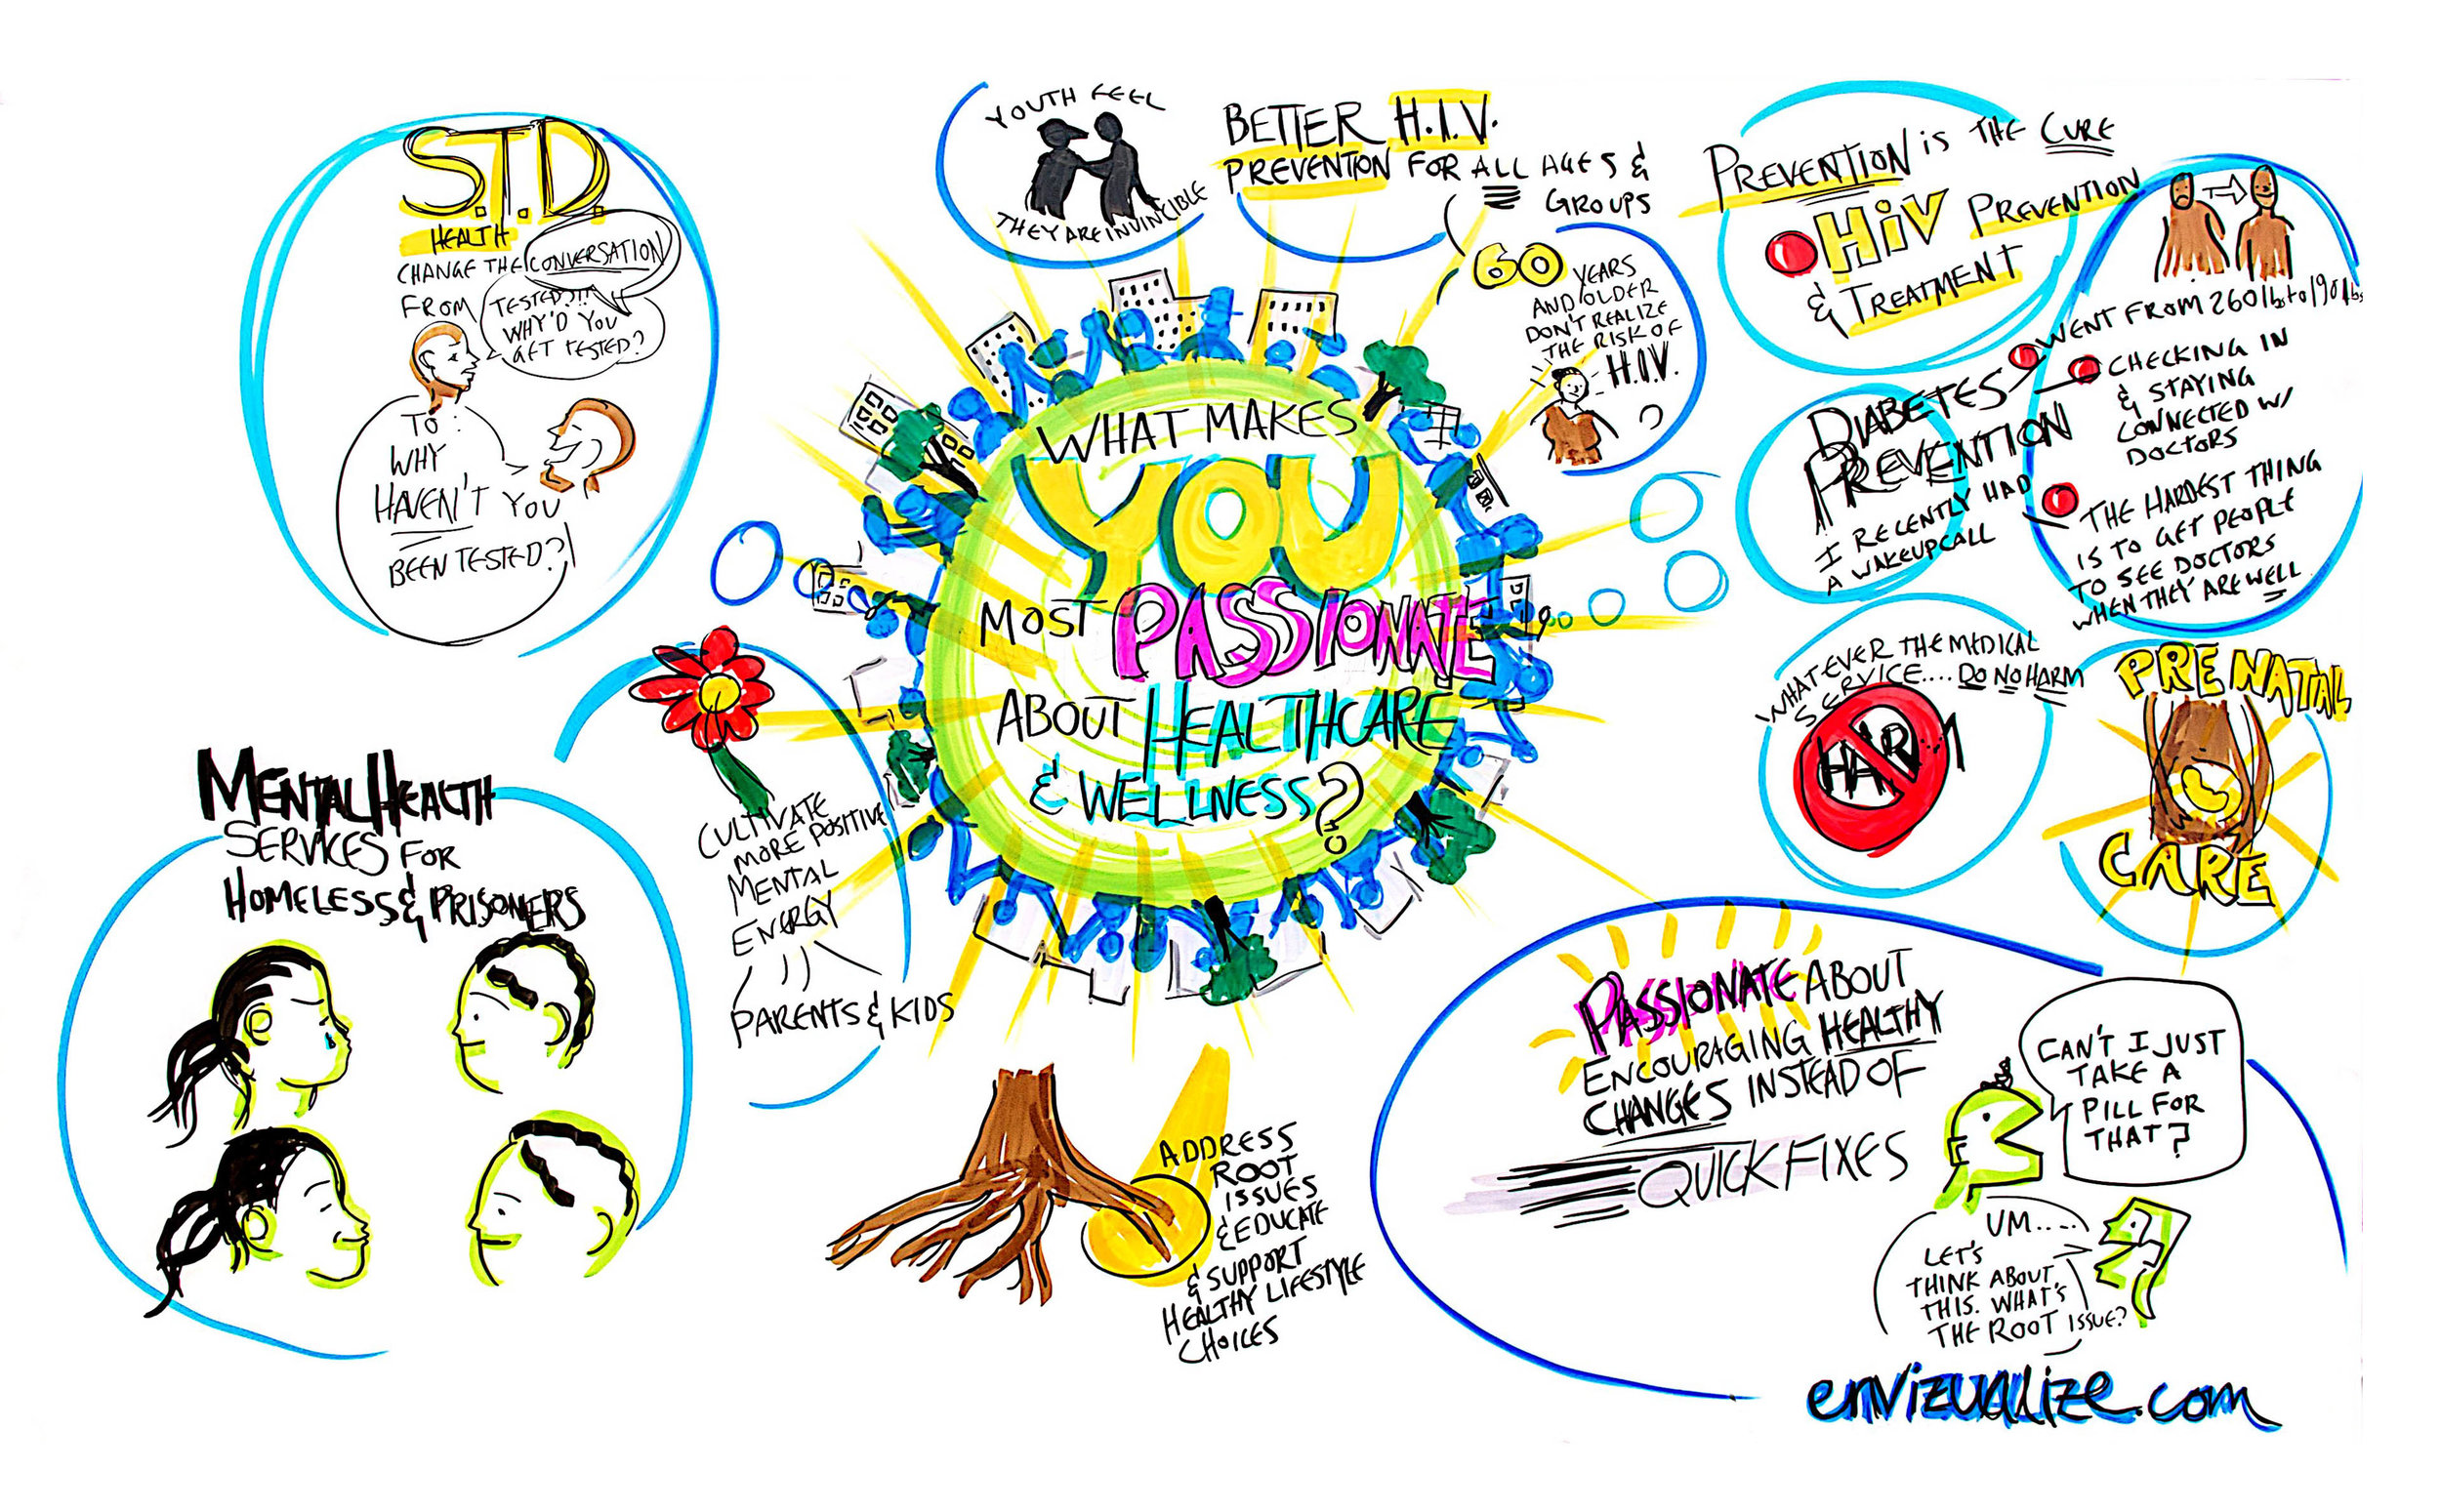 S.T.D.
HEALTH
CHANGE THE CONVERSATION
FROM
TESTED?!!
WHY'D YOU
GET TESTED?
TO:
WHY
HAVEN'T YOU
BEEN TESTED?!
YOUTH FEEL
THEY ARE INVINCIBLE
BETTER H.I.V.
PREVENTION FOR ALL AGES &
GROUPS
60 YEARS
AND OLDER
DON'T REALIZE
THE RISK OF
H.I.V.
PREVENTION IS THE CURE
HIV PREVENTION
& TREATMENT
DIABETES
PREVENTION
I RECENTLY HAD
A WAKEUP CALL
WENT FROM 260 lbs to 190 lbs
CHECKING IN
& STAYING
CONNECTED W/
DOCTORS
THE HARDEST THING
IS TO GET PEOPLE
TO SEE DOCTORS
WHEN THEY ARE WELL
WHAT MAKES
YOU
MOST PASSIONATE
ABOUT HEALTHCARE
& WELLNESS?
WHATEVER THE MEDICAL
SERVICE.... DO NO HARM
HARM
PRENATAL
CARE
MENTAL HEALTH
SERVICES FOR
HOMELESS & PRISONERS
CULTIVATE
MORE POSITIVE
MENTAL
ENERGY
PARENTS & KIDS
ADDRESS
ROOT
ISSUES
& EDUCATE
& SUPPORT
HEALTHY LIFESTYLE
CHOICES
PASSIONATE ABOUT
ENCOURAGING HEALTHY
CHANGES INSTEAD OF
QUICK FIXES
CAN'T I JUST
TAKE A
PILL FOR
THAT?
UM....
LET'S
THINK ABOUT
THIS. WHAT'S
THE ROOT ISSUE?
envizualize.com